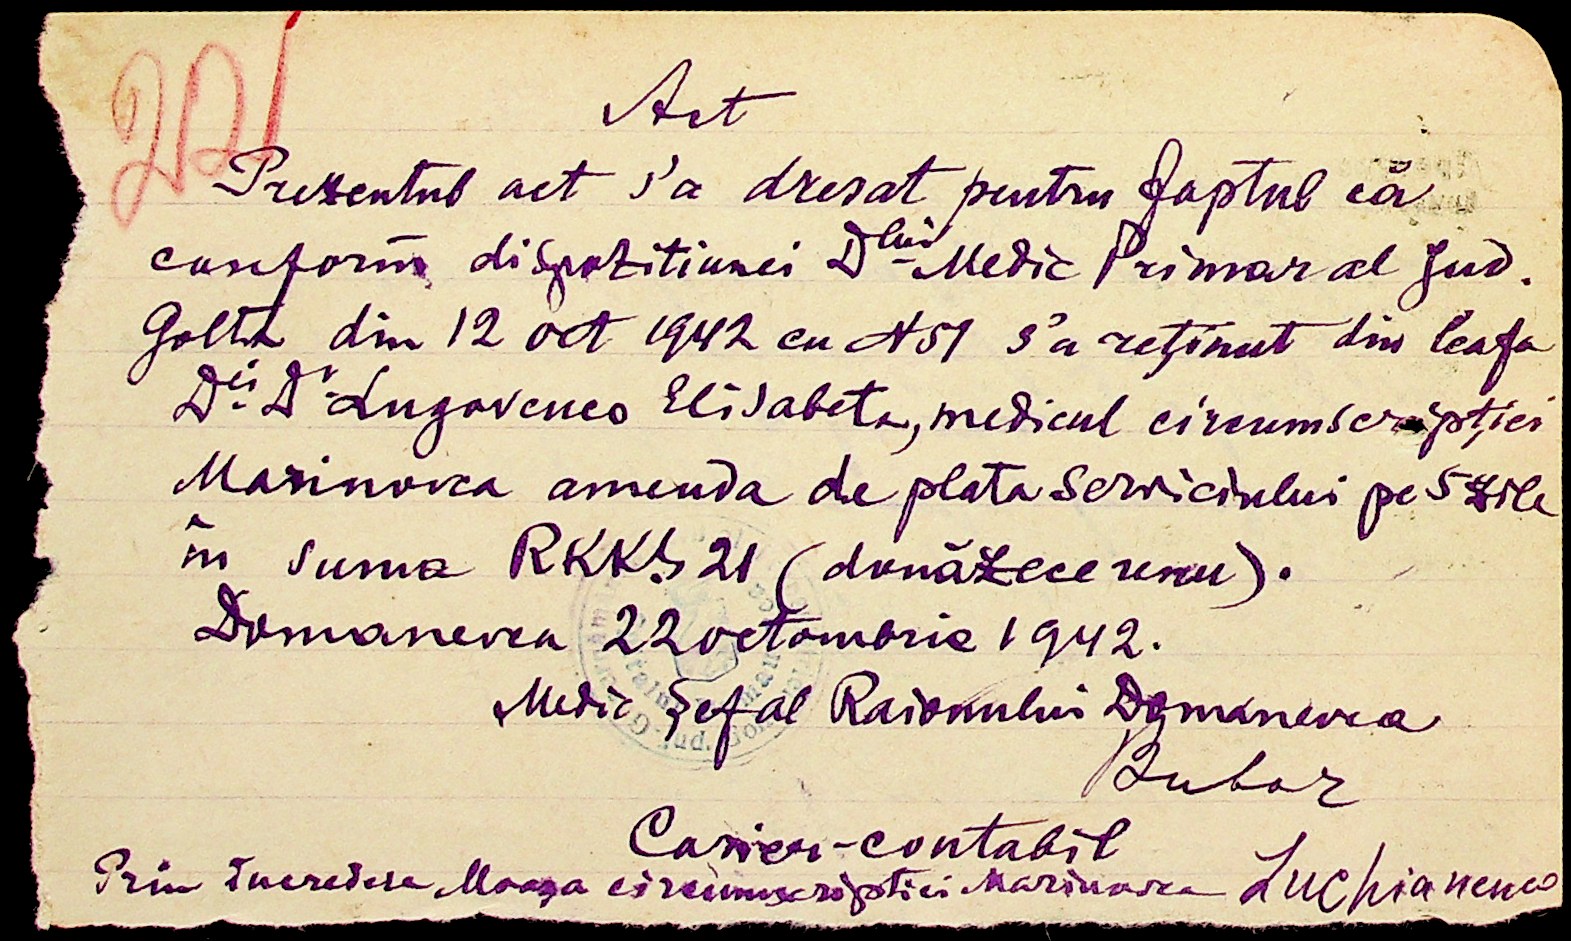 221
Act
Prezentul act s'a dresat pentru faptul că
conform dispozitiunei Dlui Medic Primar al Jud.
Golta din 12 oct 1942 cu N 51 s'a reţinut din leafa
Dei Dr Lugovenco Elisabeta, medicul circumscripţiei
Marinovca amenda de plata serviciului pe 5 zile
în suma RKKS 21 (douăzece unu).
Domanevca 22 octombrie 1942.
Medic Şef al Raionului Domanevca
Bubor
Casier-contabil
Prin încredere circumscripţiei Marinovca Luchianenco